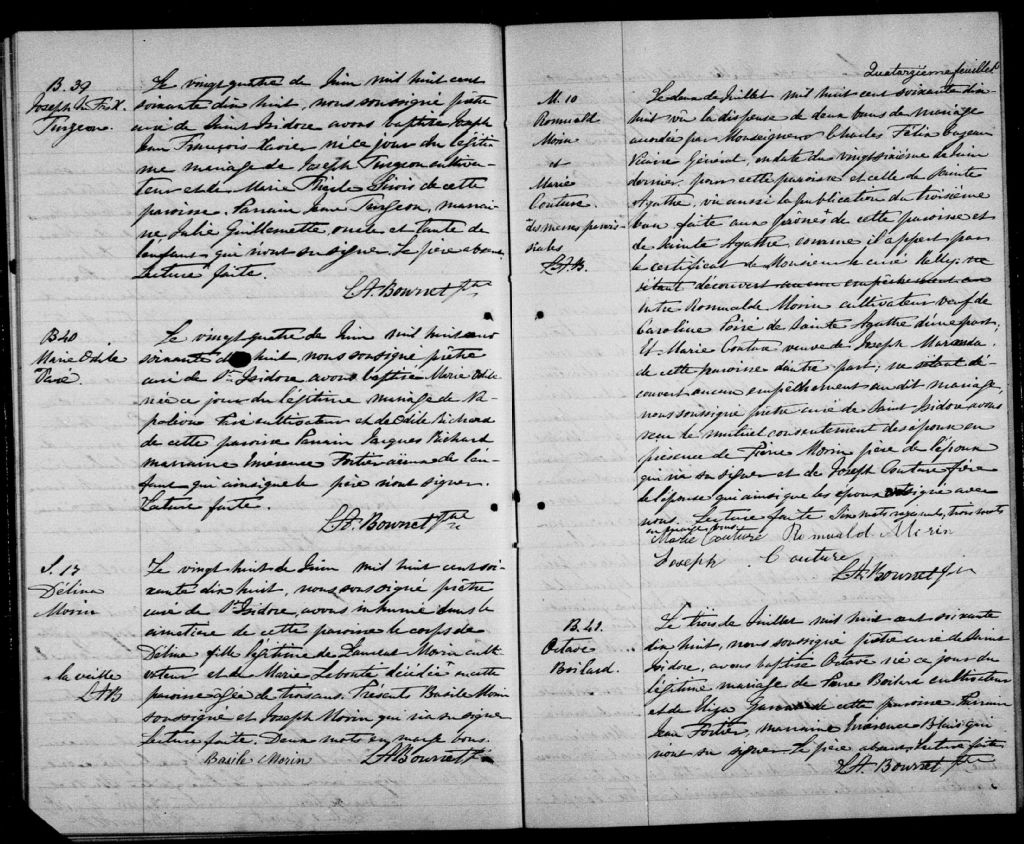 B. 39
Joseph J. Frs X.
Turgeon.
Le vingt quatre de Juin mil huit cent
soixante dix huit, nous soussigné prêtre
curé de Saint Isidore avons baptisé Joseph
Jean François Xavier né ce jour du légiti
me mariage de Joseph Turgeon cultiva-
teur et de Marie Sivois de cette
paroisse. Parrain Jean Turgeon, marrai-
ne Julie Guillemette, oncle et tante de
l'enfant qui n'ont su signer. Le père absent
Lecture faite.
L.A. Bournet Ptre
B 40
Marie Odile
Paré.
Le vingt quatre de Juin mil huit cent
soixante dix huit, nous soussigné prêtre
curé de St Isidore avons baptisé Marie Odile
née ce jour du légitime mariage de Na-
poléon Paré cultivateur et de Odile Richard
de cette paroisse Parrain Jacques Richard
marraine Émérence Fortier de l'en-
fant qui ainsi que le père n'ont signer.
Lecture faite.
L.A. Bournet Ptre
S. 17
Délina
Morin
- la veille
L.A.B
Le vingt huit de Juin mil huit cent soi-
xante dix huit, nous soussigné prêtre
curé de St Isidore, avons inhumé dans le
cimetière de cette paroisse le corps de
Délina fille légitime de Laurent Morin culti
vateur et de Marie décédée - en cette
paroisse agée de trois ans. Présents Basile Morin
soussigné et Joseph Morin qui n'a su signer
Lecture faite. Deux mots en marge bons.
Basile Morin L.A. Bournet Ptre
Quatorzième feuillet
M. 10
Romuald
Morin
et
Marie
Couture.
L.A.B.
Le deux de Juillet mil huit cent soixante dix
huit vu la dispense de deux bans de mariage
accordée par Monseigneur Charles Félix Cazeau
Vicaire Général, en date du vingt sixième de Juin
dernier, pour cette paroisse et celle de Sainte
Agathe, vu aussi la publication du troisième
ban faite aux prônes de cette paroisse et
de Sainte Agathe, comme il appert par
le certificat de Monsieur le curé Kelly; ne
s'étant découvert aucun empêchement
entre Romualde Morin cultivateur veuf de
Caroline Poiré de Sainte Agathe d'une part;
Et Marie Couture veuve de Joseph Maranda
de cette paroisse d'autre part; ne s'étant dé-
couvert aucun empêchement au dit mariage,
nous soussigné prêtre curé de Saint Isidore avons
reçu le mutuel consentement des époux en
présence de Pierre Morin père de l'époux
qui n'a su signer et de Joseph Couture frère
de l'épouse qui ainsi que les époux ont signé avec
nous. Lecture faite Six mots rayés nuls, trois mots
en marge bons.
Marie Couture Romuald Morin
Joseph Couture
L.A. Bournet Ptre
B. 41.
Octave
Boilard.
Le trois de Juillet mil huit cent soixante
dix huit, nous soussigné prêtre curé de Saint
Isidore, avons baptisé Octave né ce jour du
légitime mariage de Pierre Boilard cultivateur
et de de cette paroisse Parrain
Jean Fortier, marraine Émérence Blais qui
n'ont su signer le père absent Lecture faite
L.A. Bournet Ptre